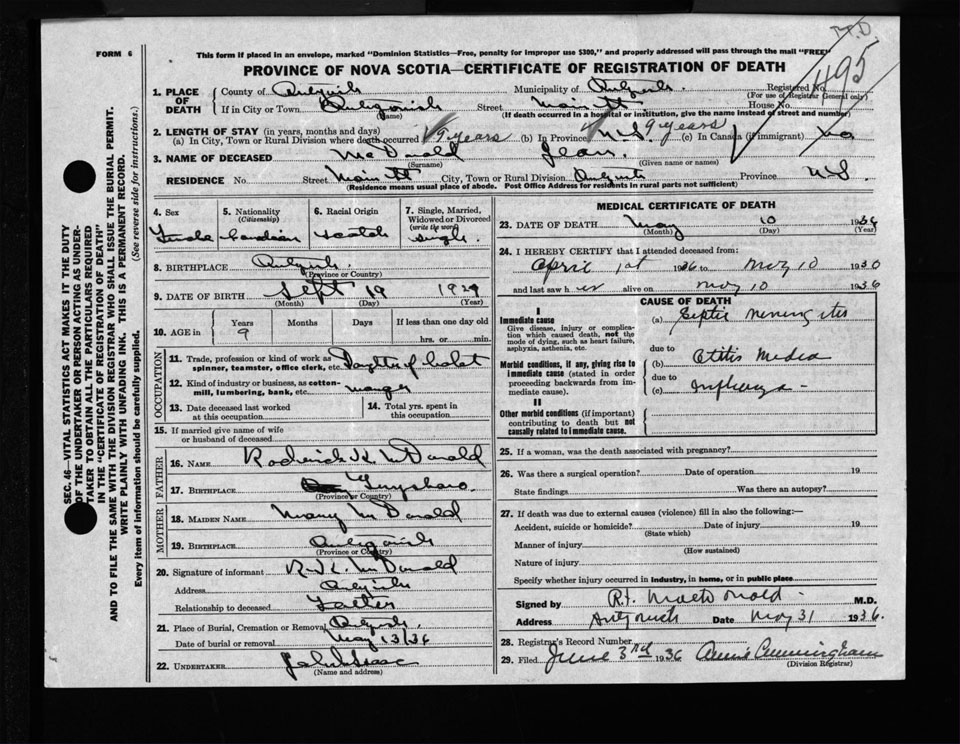 M.D.
FORM 6
This form if placed in an envelope, marked "Dominion Statistics—Free, penalty for improper use $300," and properly addressed will pass through the mail "FREE"
PROVINCE OF NOVA SCOTIA—CERTIFICATE OF REGISTRATION OF DEATH
495
1. PLACE OF DEATH
County of Antigonish Municipality of Antigonish. Registered No.
(For use of Registrar General only)
If in City or Town Antigonish Street Main St House No.
(Name) (If death occurred in a hospital or institution, give the name instead of street and number)
2. LENGTH OF STAY (in years, months and days)
(a) In City, Town or Rural Division where death occurred 9 years (b) In Province N.S. 9 years (c) In Canada (if immigrant) no
3. NAME OF DECEASED McDonald Jean.
(Surname) (Given name or names)
RESIDENCE No. Street Main St City, Town or Rural Division Province N.S.
(Residence means usual place of abode. Post Office Address for residents in rural parts not sufficient)
4. Sex Female
5. Nationality (Citizenship) Canadian
6. Racial Origin Scotch
7. Single, Married, Widowed or Divorced (write the word) single.
8. BIRTHPLACE Antigonish.
(Province or Country)
9. DATE OF BIRTH Sept 19
(Month) (Day) (Year)
10. AGE in Years Months Days If less than one day old
9 hrs. or min.
OCCUPATION
11. Trade, profession or kind of work as spinner, teamster, office clerk, etc.
12. Kind of industry or business, as cotton-mill, lumbering, bank, etc.
13. Date deceased last worked at this occupation
14. Total yrs. spent in this occupation
15. If married give name of wife or husband of deceased
FATHER
16. NAME Roderick K. McDonald
17. BIRTHPLACE Guysboro.
(Province or Country)
MOTHER
18. MAIDEN NAME Mary McDonald
19. BIRTHPLACE Antigonish
(Province or Country)
20. Signature of informant R. K. McDonald
Address Antigonish
Relationship to deceased Father
21. Place of Burial, Cremation or Removal Antigonish.
Date of burial or removal May 13/36
22. UNDERTAKER
(Name and address)
MEDICAL CERTIFICATE OF DEATH
23. DATE OF DEATH May 10 1936
(Month) (Day) (Year)
24. I HEREBY CERTIFY that I attended deceased from:
April 1st 1936 to May 10 19
and last saw her alive on May 10 1936
CAUSE OF DEATH
I
Immediate cause
Give disease, injury or complication which caused death, not the mode of dying, such as heart failure, asphyxia, asthenia, etc.
(a) Septic Meningitis
due to
Morbid conditions, if any, giving rise to immediate cause (stated in order proceeding backwards from immediate cause).
(b) Otitis Media
due to
(c) Influenza
II
Other morbid conditions (if important) contributing to death but not causally related to immediate cause.
25. If a woman, was the death associated with pregnancy?
26. Was there a surgical operation? Date of operation 19
State findings Was there an autopsy?
27. If death was due to external causes (violence) fill in also the following:—
Accident, suicide or homicide? Date of injury 19
(State which)
Manner of injury
(How sustained)
Nature of injury
Specify whether injury occurred in industry, in home, or in public place
Signed by R.F. MacDonald M.D.
Address Antigonish Date May 31 1936.
28. Registrar's Record Number
29. Filed June 3rd 1936 Annie Cunningham
(Division Registrar)
SEC. 46—VITAL STATISTICS ACT MAKES IT THE DUTY
OF THE UNDERTAKER OR PERSON ACTING AS UNDER-
TAKER TO OBTAIN ALL THE PARTICULARS REQUIRED
IN THE "CERTIFICATE OF REGISTRATION OF DEATH"
AND TO FILE THE SAME WITH THE DIVISION REGISTRAR WHO SHALL ISSUE THE BURIAL PERMIT.
WRITE PLAINLY WITH UNFADING INK. THIS IS A PERMANENT RECORD.
Every item of information should be carefully supplied. (See reverse side for instructions.)